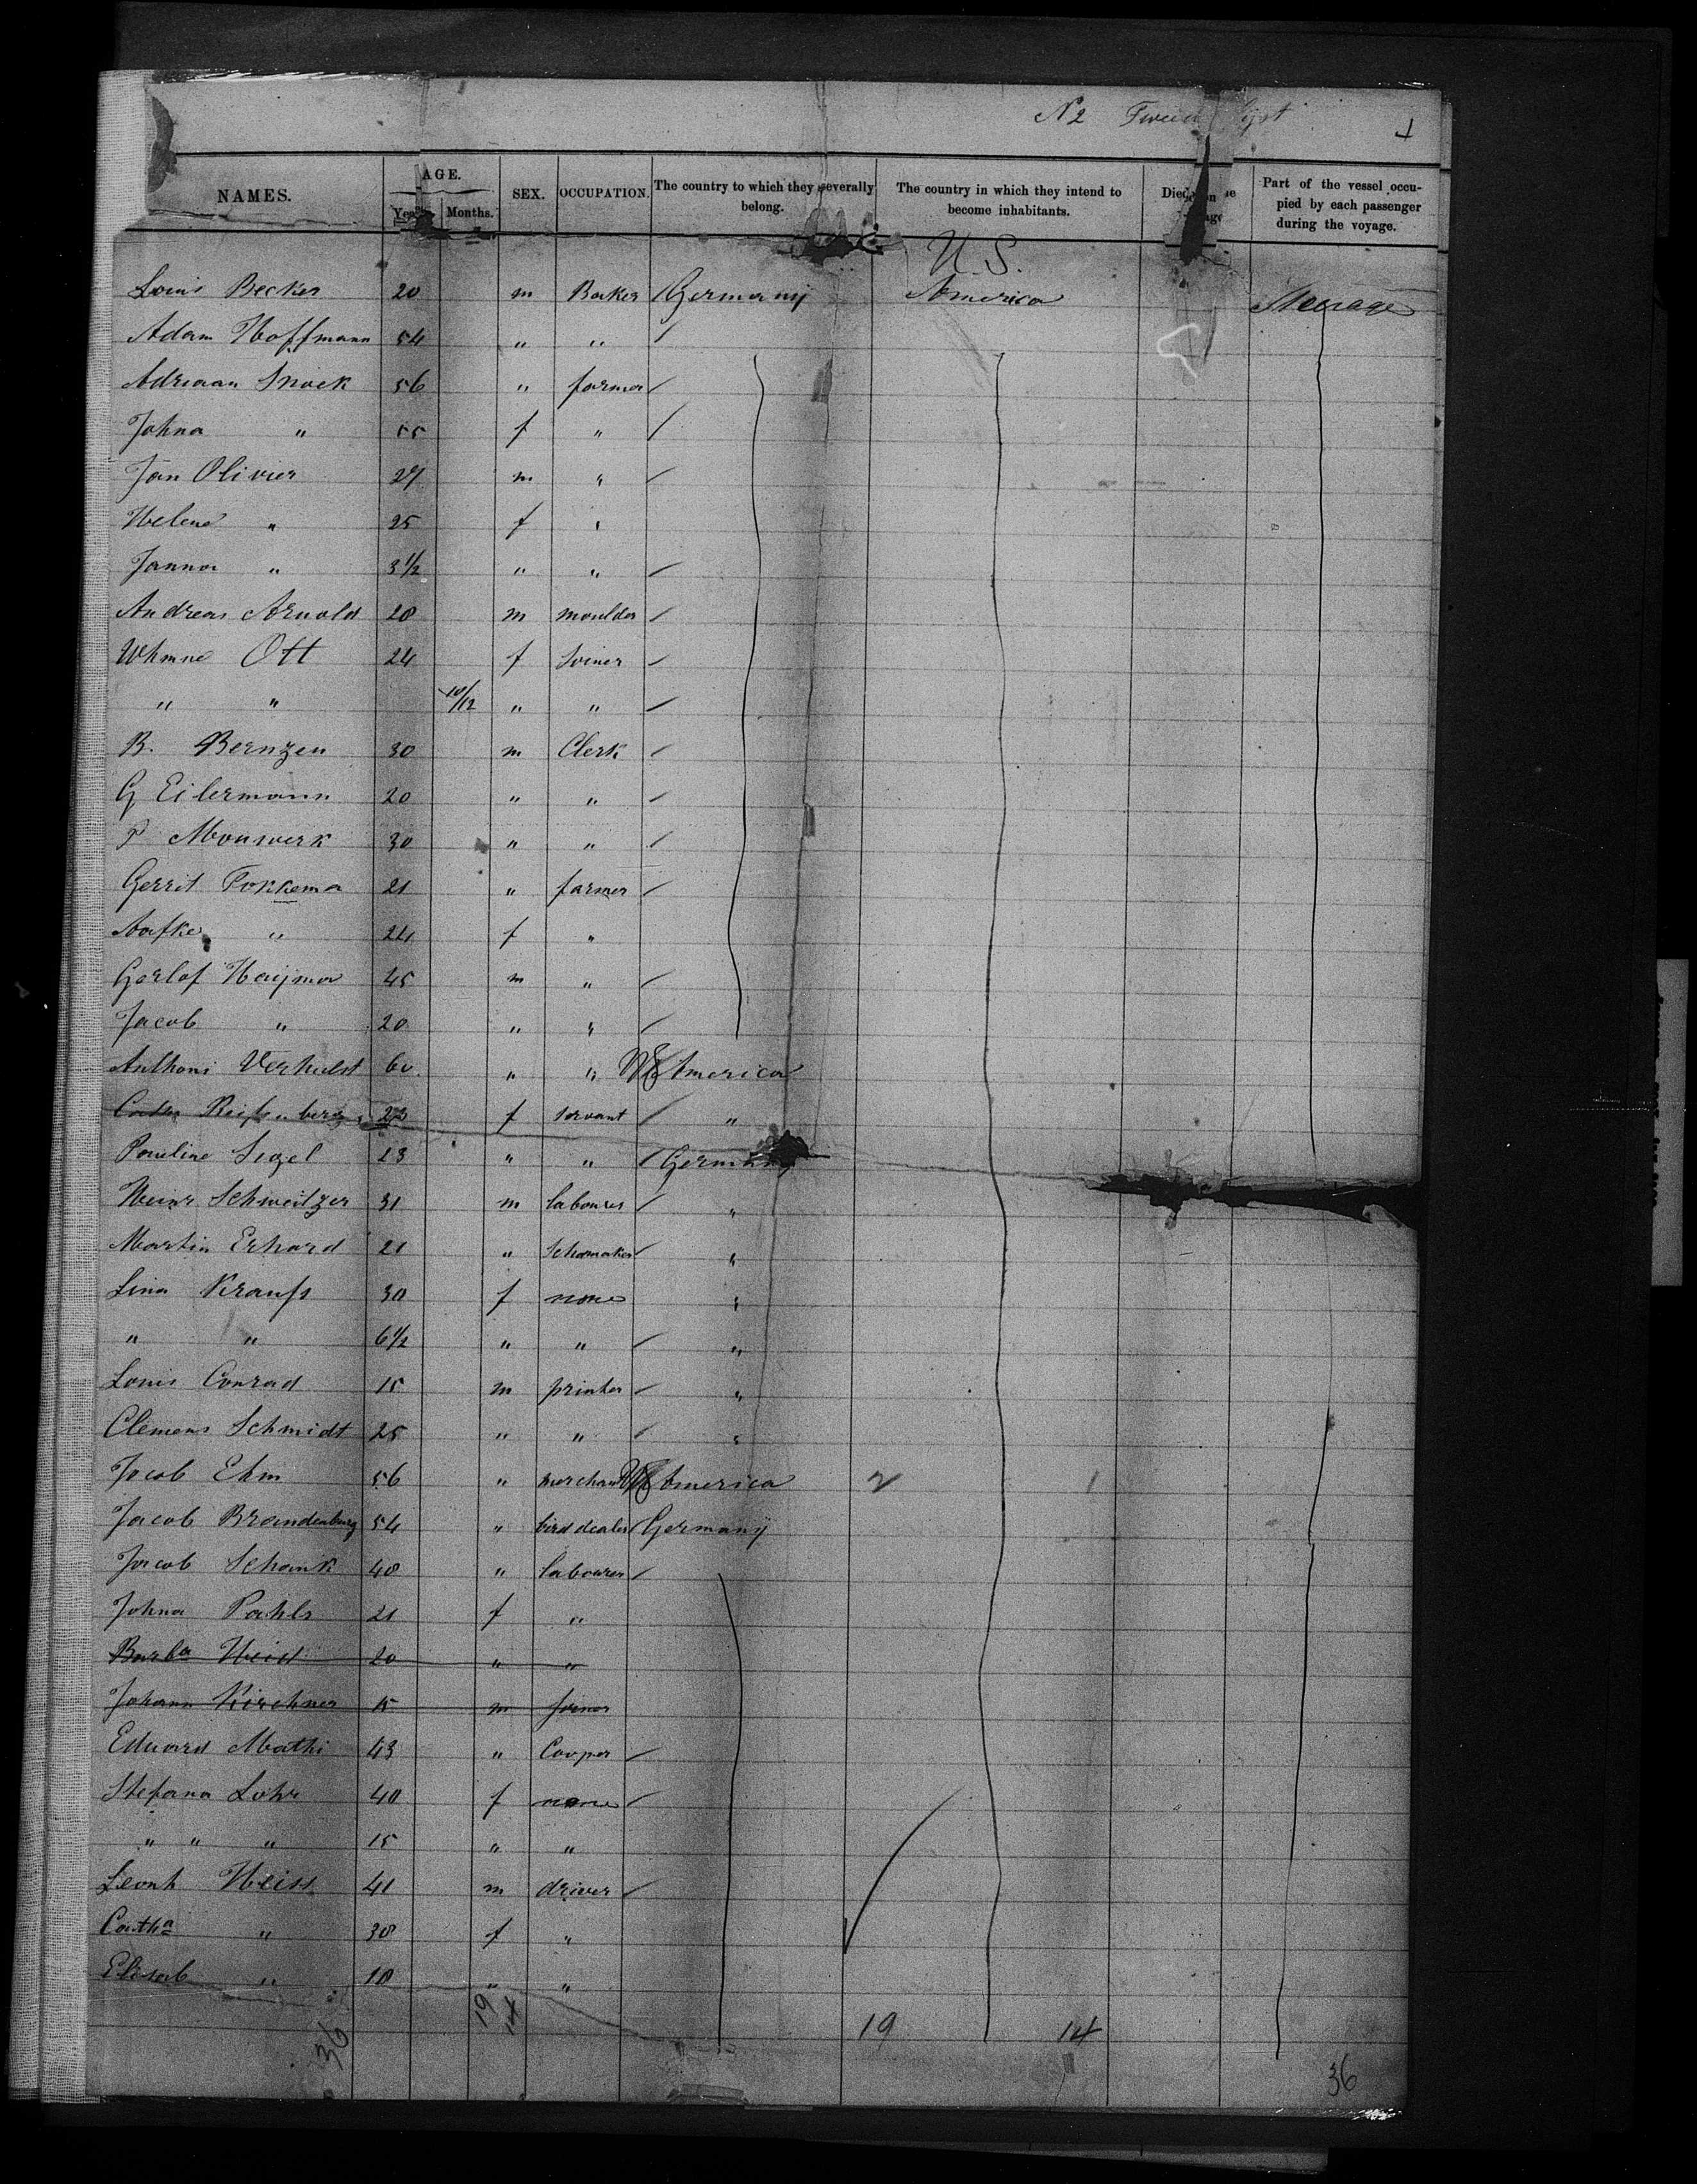 N 2 lijst 1
NAMES. AGE. Years Months. SEX. OCCUPATION. The country to which they severally belong. The country in which they intend to become inhabitants. Part of the vessel occupied by each passenger during the voyage.
U. S.
Louis Becker 20 m Baker Germany America Steerage
Adam Hoffmann 54 " "
Adriaan Snoek 56 " farmer
Johna " 55 f "
Jan Olivier 27 m "
Helene " 25 f "
Janna " 3 1/2 " "
Andreas Arnold 28 m moulder
Whmne Ott 24 f Joiner
" " 10/12 " "
B. Bernzen 30 m Clerk
G Eilermann 20 " "
P Monswerk 30 " "
Gerrit Fokkema 21 " farmer
Aafke " 24 f "
Gerlof Haijma 45 m "
Jacob " 20 " "
Anthoni Verhulst 60 " " America
23 f servant "
Pauline Segel 23 " " Germany
Heinr Schweitzer 31 m labourer "
Martin Erhard 21 " Schomaker "
Lina Krauss 30 f none "
" " 6 1/2 " " "
Louis Conrad 15 m printer "
Clemens Schmidt 25 " " "
Jacob Ehm 56 " merchant America 2 1
Jacob Brandenburg 54 " bird dealer Germany
Jacob Schank 48 " labourer
Johna Pahls 21 f "
Barba Heid 20 " "
Johann Kirchner 15 m joiner
Eduard Mathi 43 " Cooper
Stefana Lohr 40 f none
" " " 15 " "
Leonh Heiss 41 m driver
Catha " 38 f "
Elisab " 10 " "
36 19 14 19 14
36